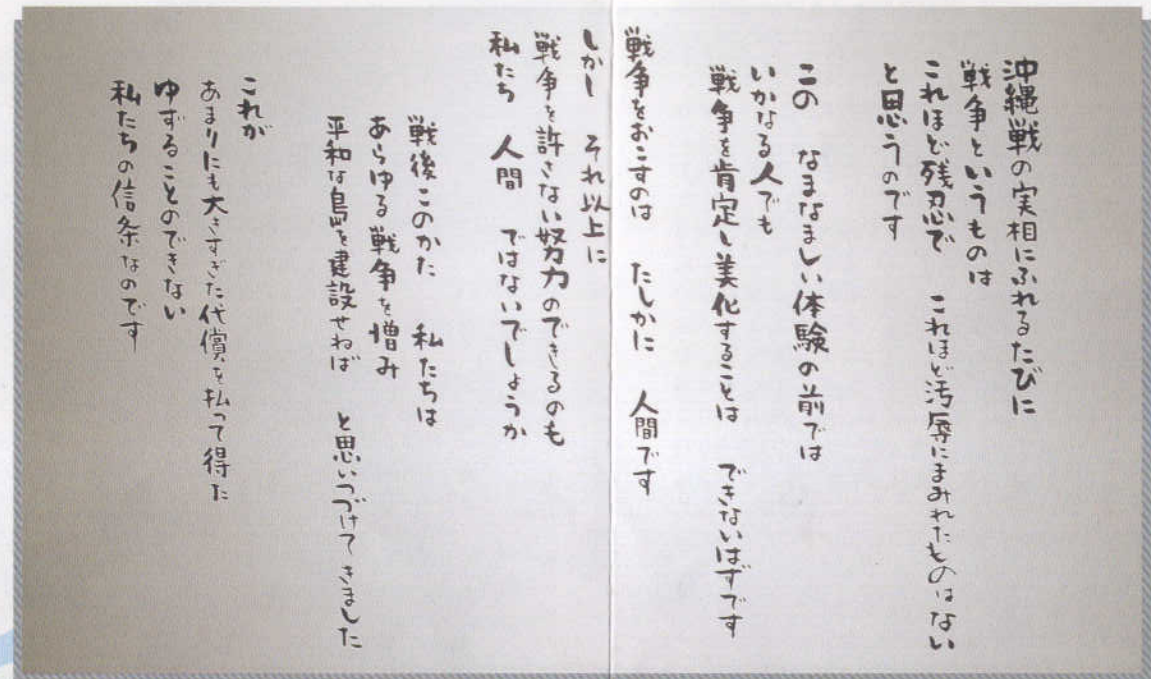 沖縄戦の実相にふれるたびに
戦争というものは
これほど残忍で　これほど汚辱にまみれたものはない
と思うのです
この　なまなましい体験の前では
いかなる人でも
戦争を肯定し美化することは　できないはずです
戦争をおこすのは　たしかに　人間です
しかし　それ以上に
戦争を許さない努力のできるのも
私たち　人間　ではないでしょうか
戦後このかた　私たちは
あらゆる戦争を憎み
平和な島を建設せねば　と思いつづけてきました
これが
あまりにも大きすぎた代償を払って得た
ゆずることのできない
私たちの信条なのです